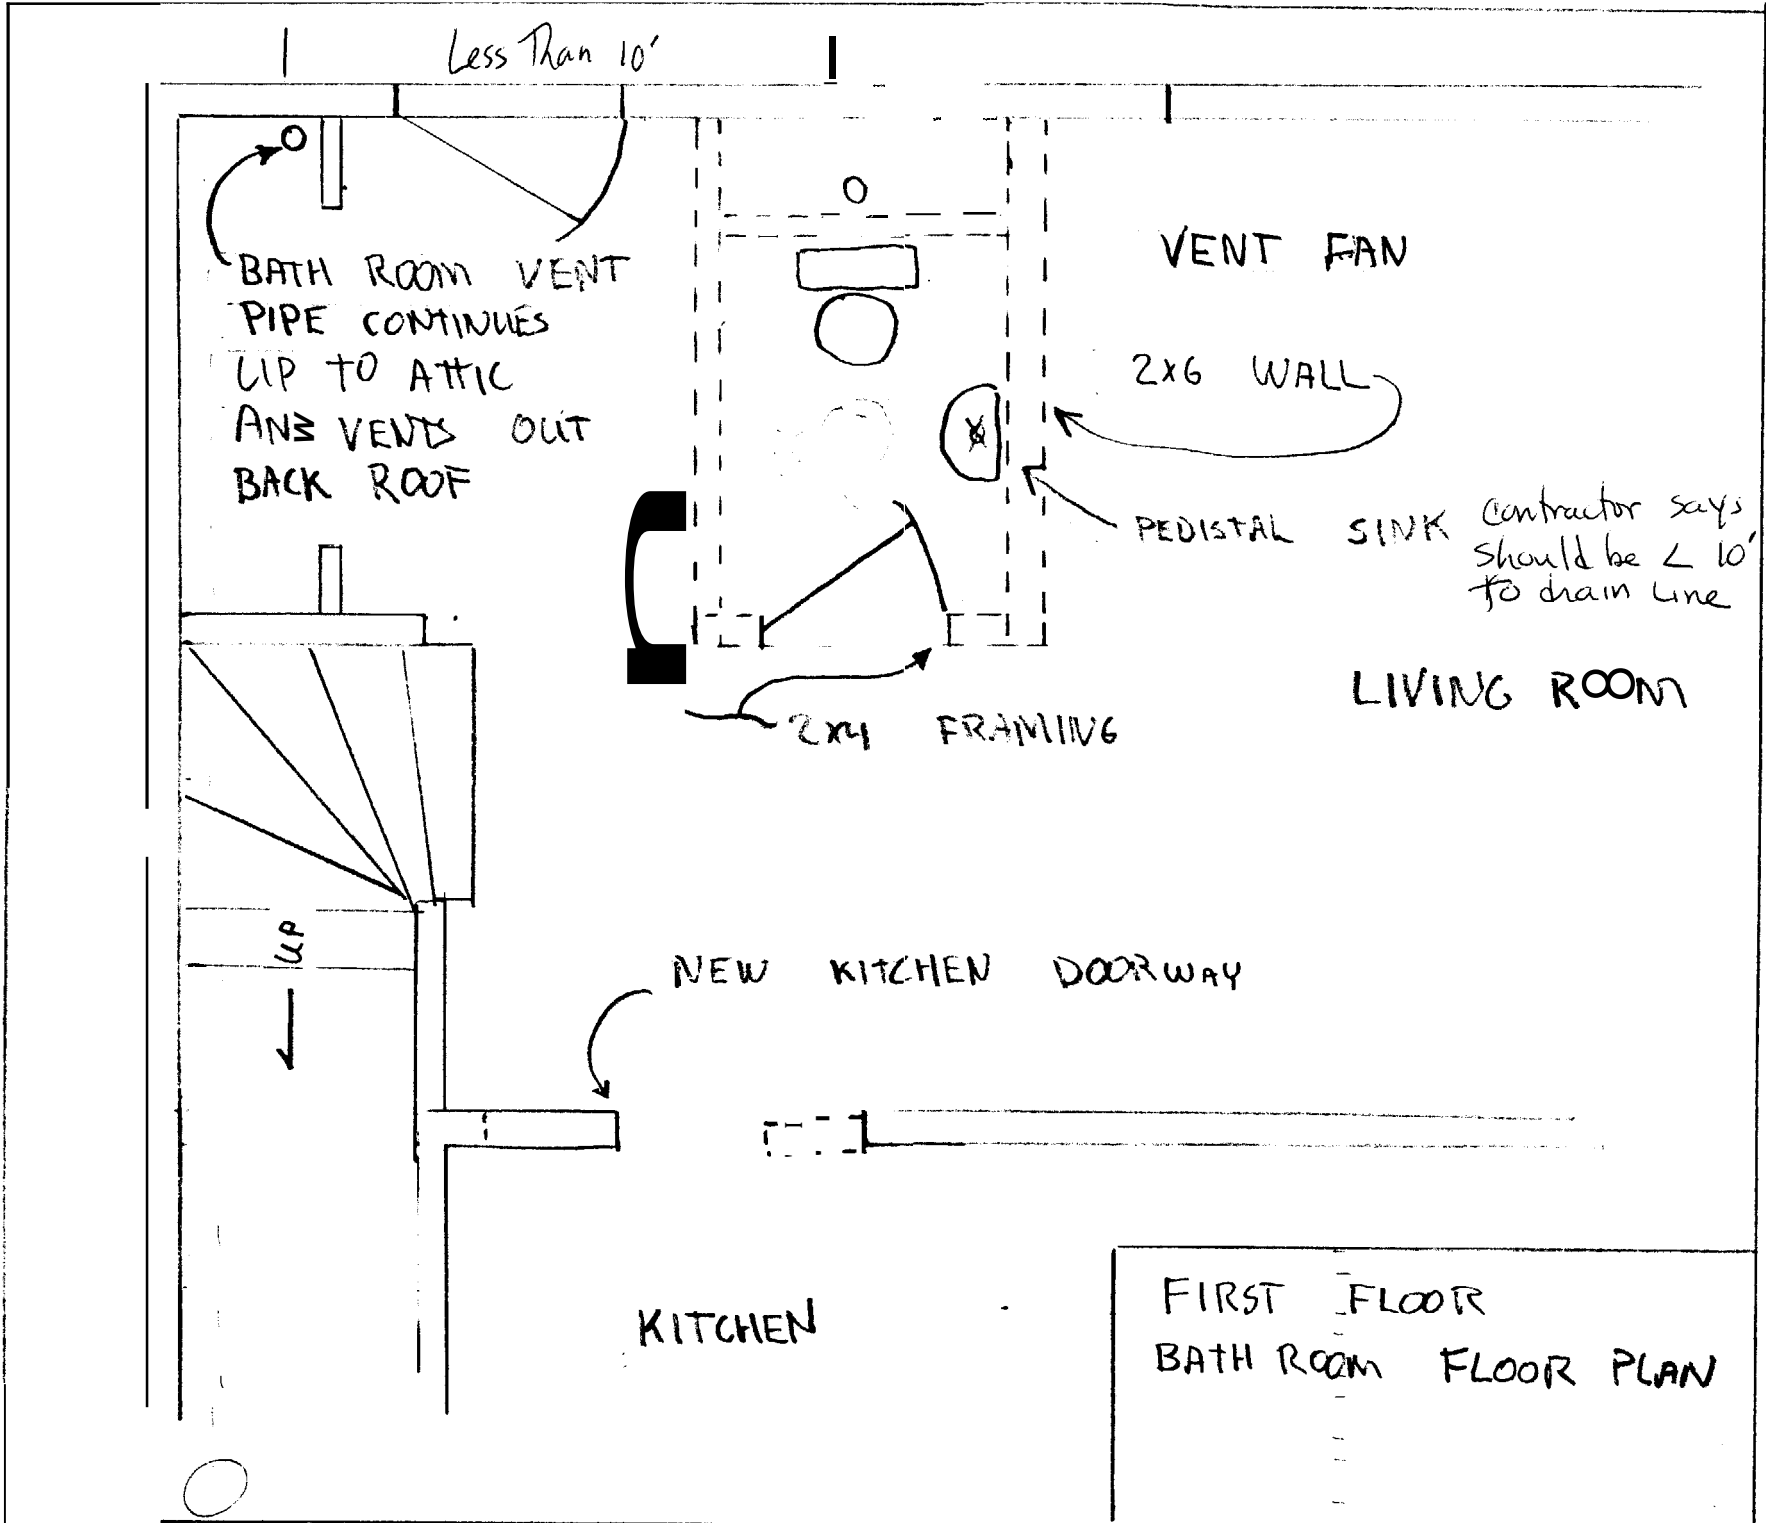 Less Than 10'
BATH ROOM VENT
PIPE CONTINUES
UP TO ATTIC
AND VENTS OUT
BACK ROOF
VENT FAN
2x6 WALL
PEDISTAL SINK
Contractor says
should be < 10'
to drain Line
LIVING ROOM
2x4 FRAMING
UP
NEW KITCHEN DOORWAY
KITCHEN
FIRST FLOOR
BATH ROOM FLOOR PLAN